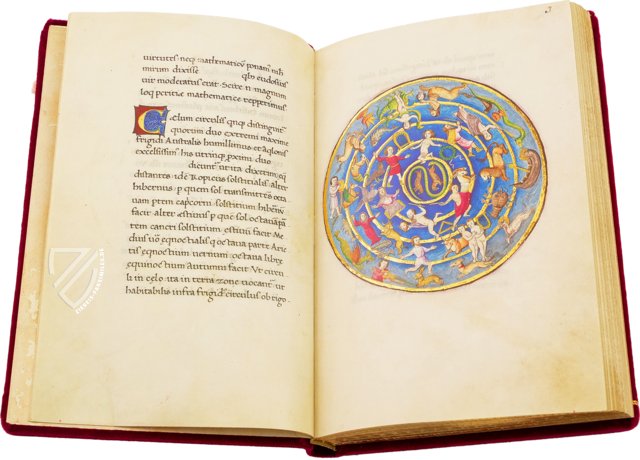 uirtutes neq; mathematicũ ponam nih
mirum dixisse qɓs eudosius
uir moderatus erat Scire n̄ magnum
loq peritie mathematice repperimus
Caelum circulis qnq; distinguit̃
quorum duo extremi maxime
frigidi Australis humillimus et aqlonis
excelsissim his utrinq; proximi duo
dicunt̃ ut ita decircũ
distantes idẽ Tropicus solstitialis alter
hibernus p quem sol transmittẽs
uam ptem capcorni solstitium
facit alter estiuus p quẽ sol octauã
tem cancri solstitium facit
Medius uõ eqnoctialis q octaua parte Arie
tis eqnoctium uernum octaua libre
equinoctium autumni facit Vt circu
li in celo ita in terra zone uocant̃ ut
habitabilis infra frigid circulus obrigo
3
ZIEREIS FAKSIMILES.DE